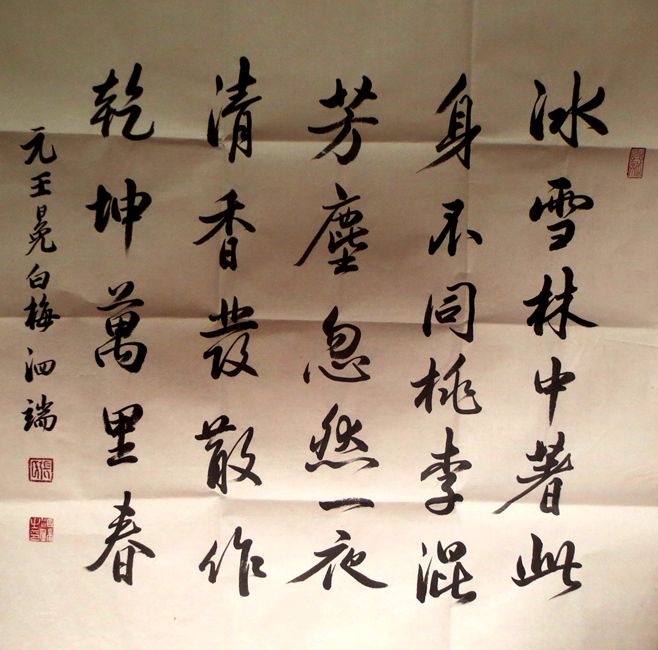 冰雪林中著此
身不同桃李混
芳塵忽然一夜
清香發散作
乾坤萬里春
元王冕白梅泗端